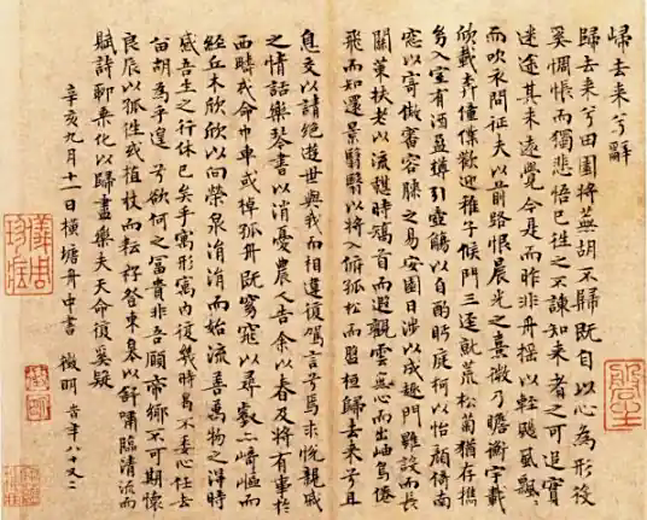 歸去来兮辭
歸去来兮田園將蕪胡不歸既自以心為形役
奚惆悵而獨悲悟已往之不諫知来者之可追實
迷途其未遠覺今是而昨非舟摇以輕颺風飄〻
而吹衣問征夫以前路恨晨光之熹微乃瞻衡宇載
欣載奔僮僕歡迎稚子候門三逕就荒松菊猶存攜
幼入室有酒盈罇引壺觴以自酌眄庭柯以怡顔倚南
窓以寄傲審容膝之易安園日涉以成趣門雖設而長
關策扶老以流憩時矯首而遐觀雲無心而出岫鳥倦
飛而知還景翳翳以將入撫孤松而盤桓歸去来兮且
息交以請絶遊世與我而相違復駕言兮焉求悅親戚
之情話樂琴書以消憂農人告余以春及將有事於
西疇或命巾車或棹孤舟既窈窕以尋壑亦崎嶇而
經丘木欣欣以向榮泉涓涓而始流善萬物之得時
感吾生之行休已矣乎寓形寓内復幾時曷不委心任去
留胡為乎遑兮欲何之富貴非吾願帝鄉不可期懷
良辰以孤往或植杖而耘耔登東皋以舒嘯臨清流而
賦詩聊乘化以歸盡樂夫天命復奚疑
辛亥九月十一日橫塘舟中書 徵明 時年八十又二